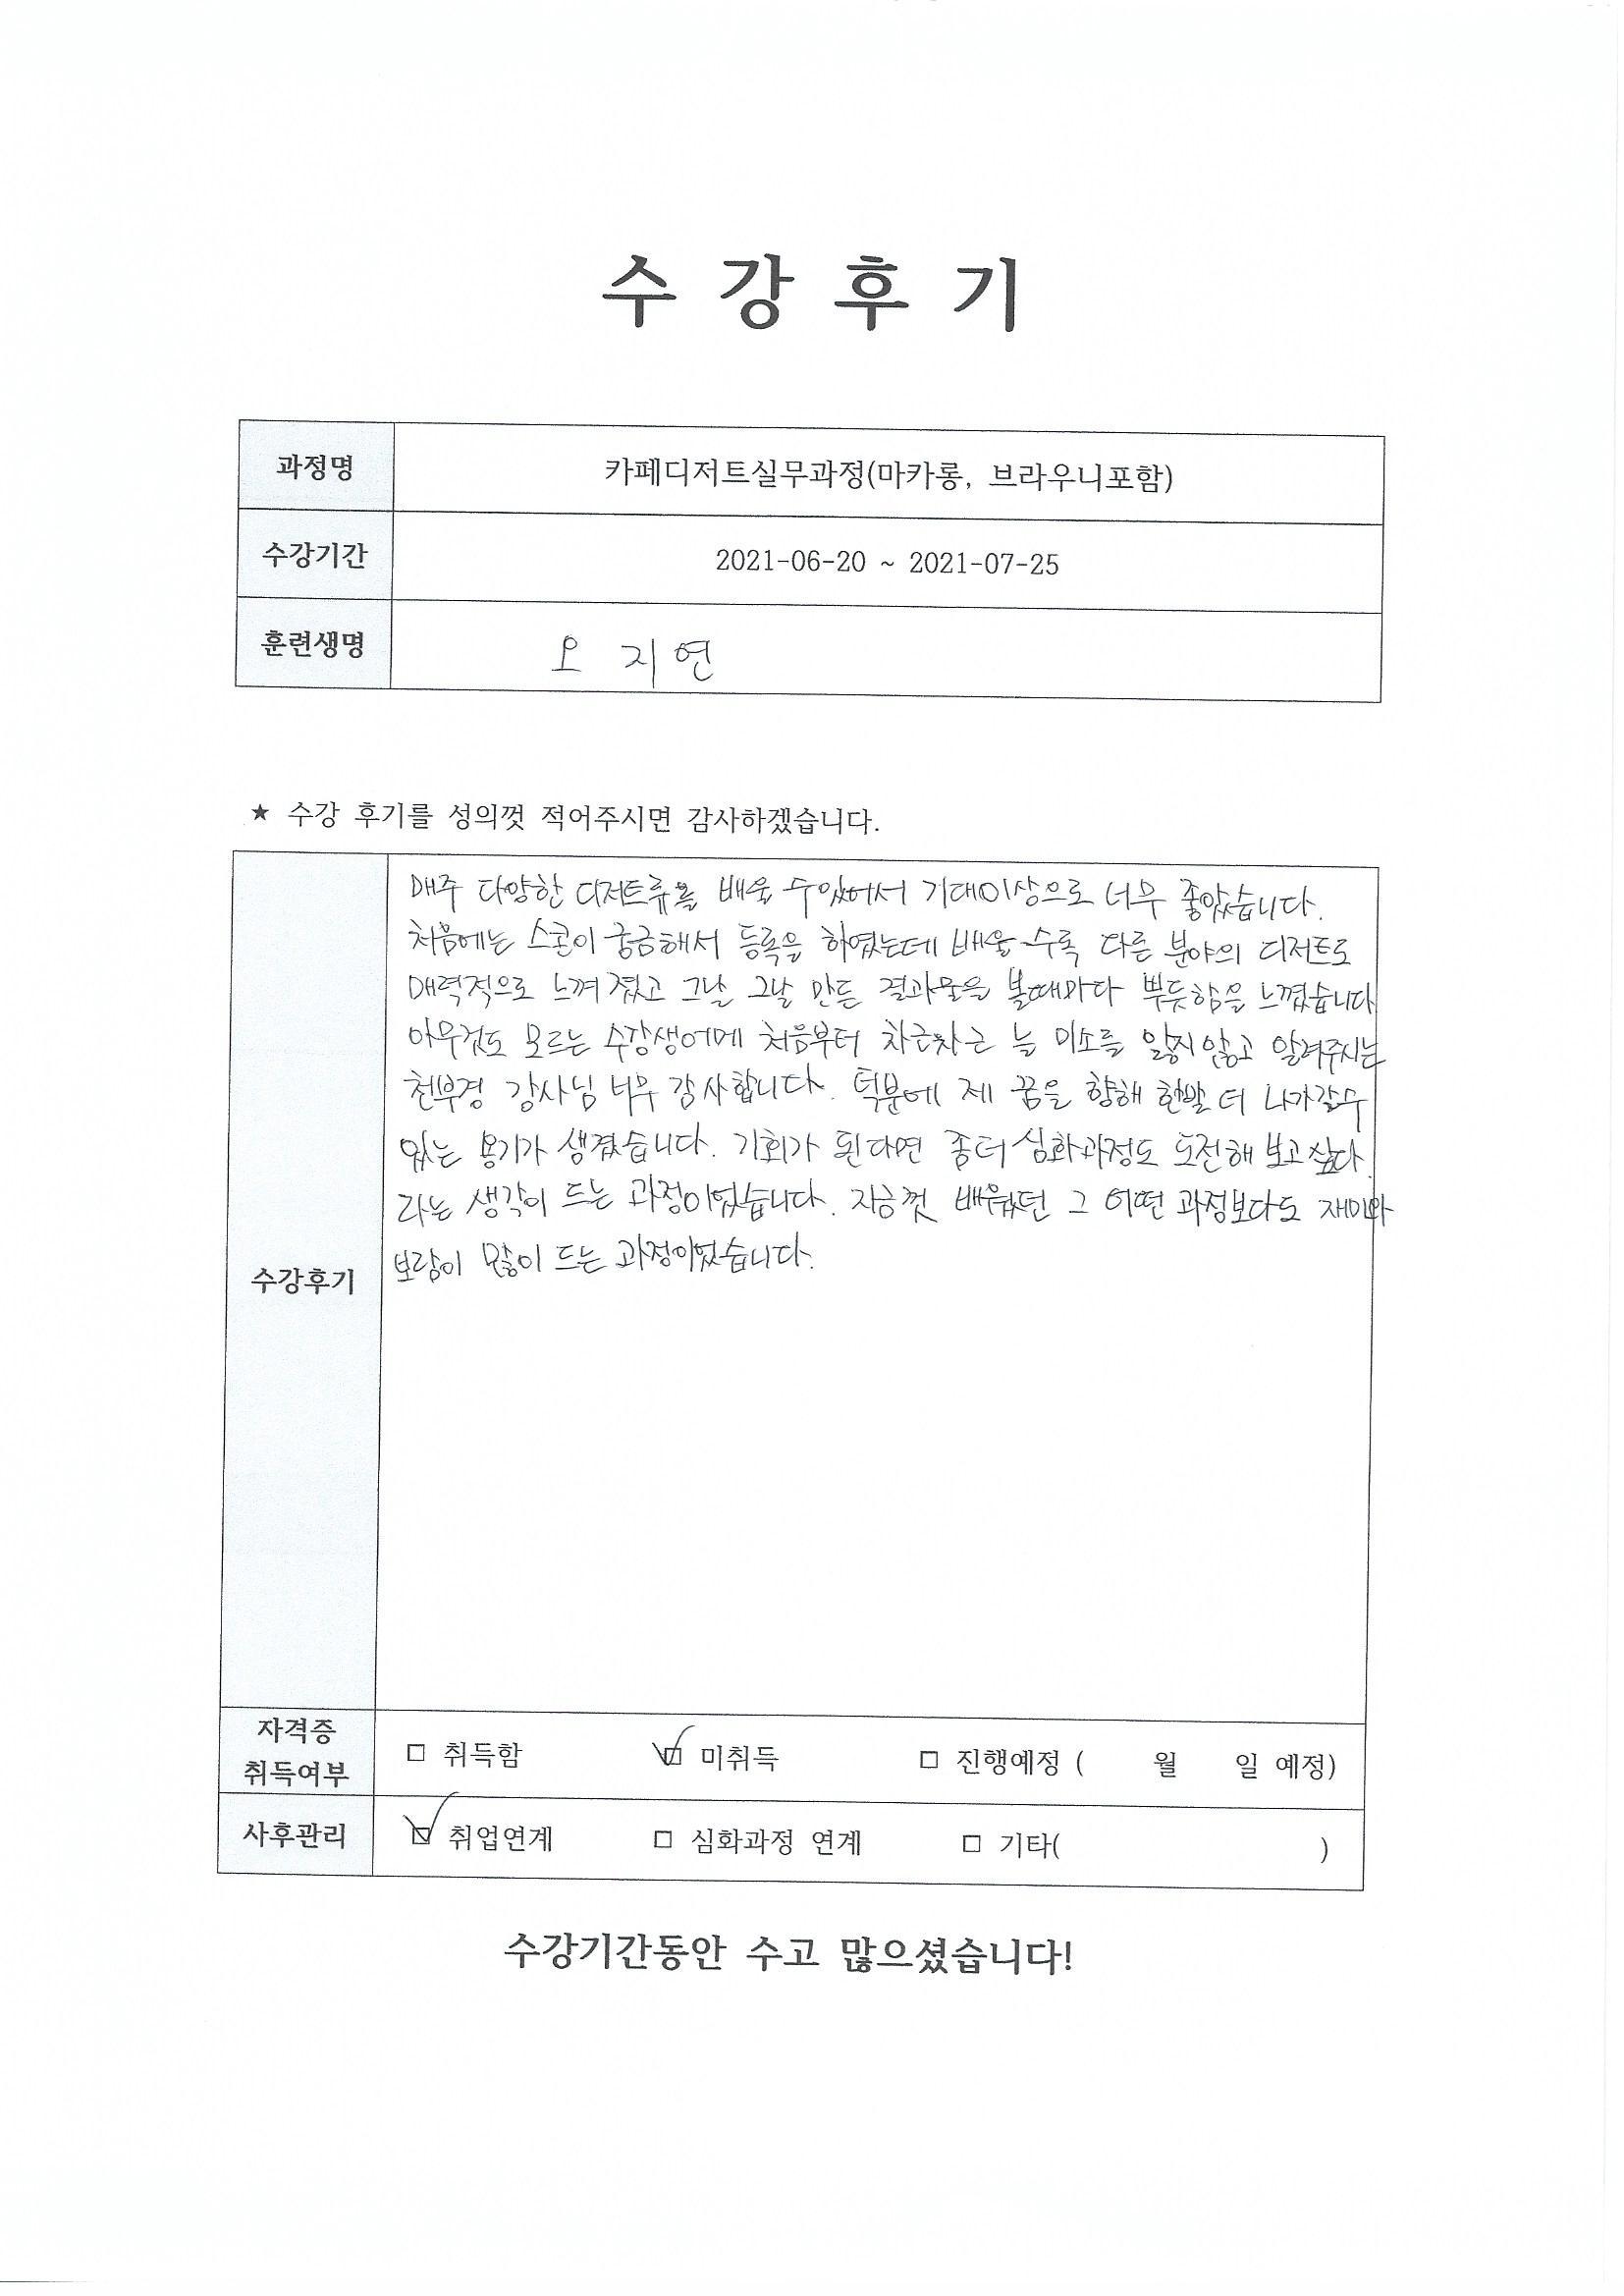 수 강 후 기
과정명 카페디저트실무과정(마카롱, 브라우니포함)
수강기간 2021-06-20 ~ 2021-07-25
훈련생명 오 지연
★ 수강 후기를 성의껏 적어주시면 감사하겠습니다.
매주 다양한 디저트류를 배울 수있어서 기대이상으로 너무 좋았습니다.
처음에는 스콘이 궁금해서 등록을 하였는데 배울수록 다른 분야의 디저트도
매력적으로 느껴졌고 그날 그날 만든 결과물을 볼때마다 뿌듯함을 느꼈습니다
아무것도 모르는 수강생에게 처음부터 차근차근 늘 미소를 잃지않고 알려주시는
천부경 강사님 너무 감사합니다. 덕분에 제 꿈을 향해 한발 더 나가갈수
있는 용기가 생겼습니다. 기회가 된다면 좀더 심화과정도 도전해 보고싶다.
라는 생각이 드는 과정이었습니다. 지금껏 배웠던 그 어떤 과정보다도 재미와
보람이 많이 드는 과정이었습니다.
수강후기
자격증
취득여부
□ 취득함 ☑ 미취득 □ 진행예정 ( 월 일 예정)
사후관리 ☑ 취업연계 □ 심화과정 연계 □ 기타( )
수강기간동안 수고 많으셨습니다!